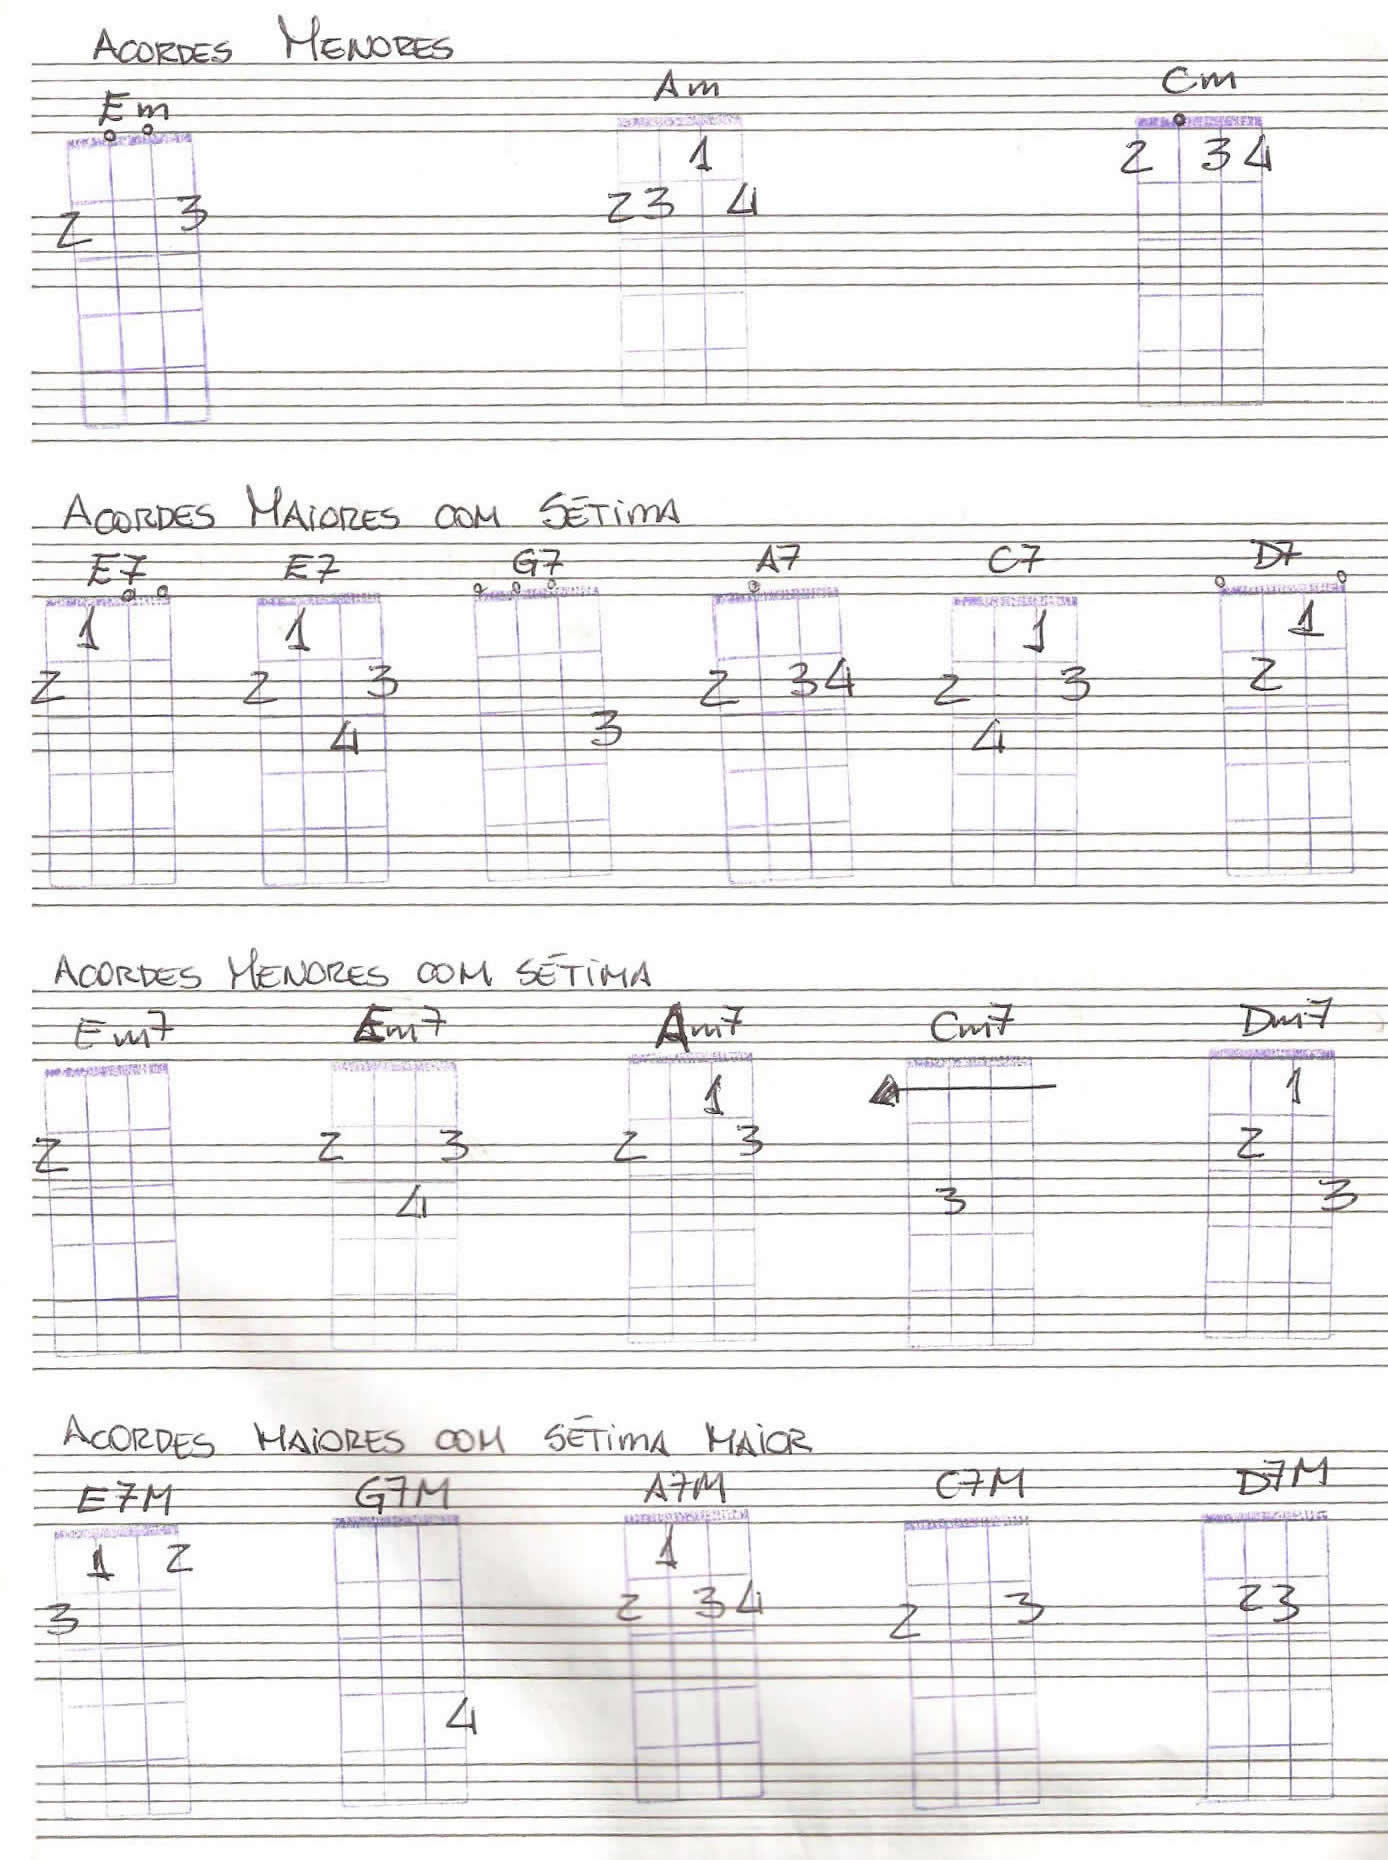 ACORDES MENORES
Em Am Cm
1
2 3 4
2 3
2 3 4
ACORDES MAIORES COM SÉTIMA
E7 E7 G7 A7 C7 D7
1 1 1 1
2 2 3 2 3 4 2 3 2
4 3 4
ACORDES MENORES COM SÉTIMA
Em7 Em7 Am7 Cm7 Dm7
1 1
2 2 3 2 3 2
4 3 3
ACORDES MAIORES COM SÉTIMA MAIOR
E7M G7M A7M C7M D7M
1 2 1
3 2 3 4 2 3 2 3
4